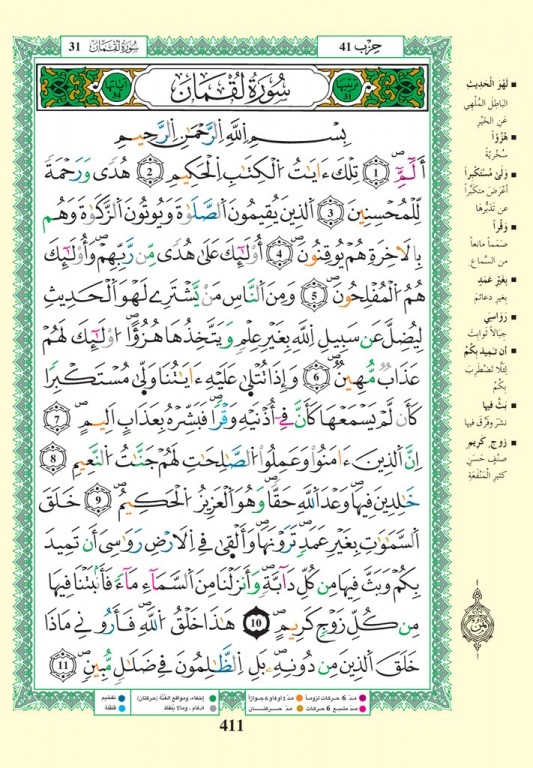 حِزْب 41
سُورَةُ لُقْمَان 31
تَرتيبُها 31
سُورَةُ لُقْمَان
آيَاتُها
بِسْمِ اِللَّهِ اِلرَّحْمَٰنِ اِلرَّحِيمِ
أَلَٓمِّٓۖ 1 تِلْكَ ءَايَٰتُ اُلْكِتَٰبِ اِلْحَكِيمِ 2 هُدىٗ وَرَحْمَةٗ
لِّلْمُحْسِنِينَ 3 اَلذِينَ يُقِيمُونَ اَلصَّلَوٰةَ وَيُوتُونَ اَلزَّكَوٰةَ وَهُم
بِالَاخِرَةِ هُمْ يُوقِنُونَۖ 4 أُوْلَٰٓئِكَ عَلَىٰ هُدىٗ مِّن رَّبِّهِمْ وَأُوْلَٰٓئِكَ
هُمُ اُلْمُفْلِحُونَۖ 5 وَمِنَ اَلنَّاسِ مَنْ يَّشْتَرِے لَهْوَ اَلْحَدِيثِ
لِيُضِلَّ عَن سَبِيلِ اِللَّهِ بِغَيْرِ عِلْمٖ وَيَتَّخِذُهَا هُزُؤاًۖ ا۟وْلَٰٓئِكَ لَهُمْ
عَذَابٞ مُّهِينٞۖ 6 وَإِذَا تُتْلَىٰ عَلَيْهِ ءَايَٰتُنَا وَلَّىٰ مُسْتَكْبِراٗ
كَأَن لَّمْ يَسْمَعْهَا كَأَنَّ فِےٓ أُذْنَيْهِ وَقْراٗۖ فَبَشِّرْهُ بِعَذَابٍ اَلِيمٍۖ 7
اِنَّ اَلذِينَ ءَامَنُواْ وَعَمِلُواْ اُلصَّٰلِحَٰتِ لَهُمْ جَنَّٰتُ اُلنَّعِيمِ 8
خَٰلِدِينَ فِيهَاۖ وَعْدَ اَللَّهِ حَقّاٗۖ وَهُوَ اَلْعَزِيزُ اُلْحَكِيمُۖ 9 خَلَقَ
اَلسَّمَٰوَٰتِ بِغَيْرِ عَمَدٖ تَرَوْنَهَاۖ وَأَلْقَىٰ فِے اِلَارْضِ رَوَٰسِيَ أَن تَمِيدَ
بِكُمْ وَبَثَّ فِيهَا مِن كُلِّ دَآبَّةٖۖ وَأَنزَلْنَا مِنَ اَلسَّمَآءِ مَآءٗ فَأَنۢبَتْنَا فِيهَا
مِن كُلِّ زَوْجٖ كَرِيمٍۖ 10 هَٰذَا خَلْقُ اُللَّهِۖ فَأَرُونِے مَاذَا
خَلَقَ اَلذِينَ مِن دُونِهِۦۖ بَلِ اِلظَّٰلِمُونَ فِے ضَلَٰلٖ مُّبِينٖۖ 11
■ لَهْوَ الْحَدِيثِ
البَاطِلَ المُلْهِي
عَنِ الخَيْرِ
■ هُزُؤاً
سُخْرِيَّةً
■ وَلَّىٰ مُسْتَكْبِراً
أعْرَضَ مُتَكَبِّراً
عَن تَدَبُّرِهَا
■ وَقْراً
صَمَماً مَانِعاً
من السَّماع
■ بِغَيْرِ عَمَدٍ
بغيرِ دعائمَ
■ رَوَاسِيَ
جِبَالاً ثَوابِتَ
■ أن تَمِيدَ بِكُمْ
لِئَلَّا تَضْطَرِبَ
بِكُمْ
■ بَثَّ فِيها
نشر وفرَّق فيها
■ زَوْجٍ كَرِيمٍ
صِنْفٍ حَسَنٍ
كثير المَنْفَعَة
ثمن
مد 6 حركات لزوماً
مد 2 أو 4 أو 6 جوازاً
إخفاء، ومواقع الغُنَّة (حركتان)
تفخيم
مد مشبع 6 حركات
مد حركتان
إدغام، وما لا يُلفَظ
قلقلة
411